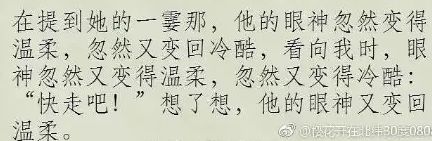 在提到她的一霎那，他的眼神忽然变得
温柔，忽然又变回冷酷，看向我时，眼
神忽然又变得温柔，忽然又变得冷酷：
“快走吧！”想了想，他的眼神又变回
温柔。
@樱花开在北纬30度080